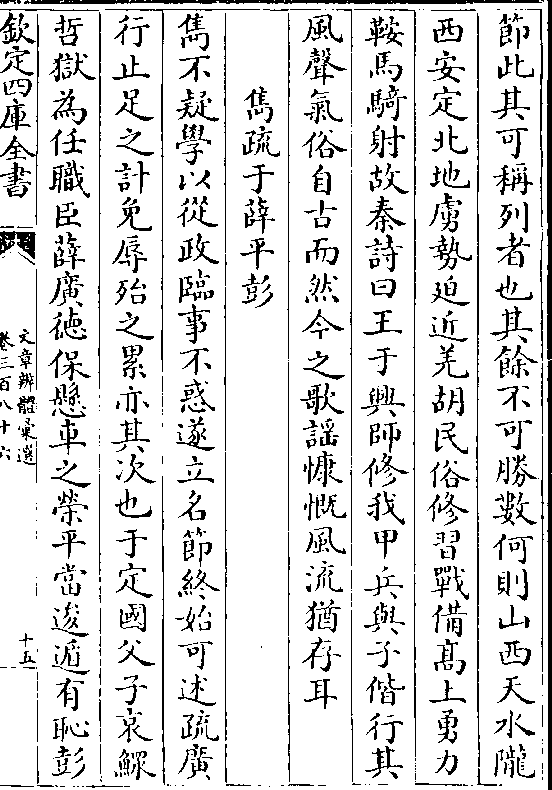 節此其可稱列者也其餘不可勝數何則山西天水隴
西安定北地處勢迫近羌胡民俗修習戰備髙上勇力
鞍馬騎射故秦詩曰王于興師修我甲兵與子偕行其
風聲氣俗自古而然今之歌謡慷慨風流猶存耳
雋疏于薛平彭
雋不疑學以從政臨事不惑遂立名節終始可述疏廣
行止足之計免辱殆之累亦其次也于定國父子哀鰥
哲獄為任職臣薛廣徳保懸車之榮平當逡遁有恥彭
欽定四庫全書
文章辨體彙選
卷三百八十六
十五